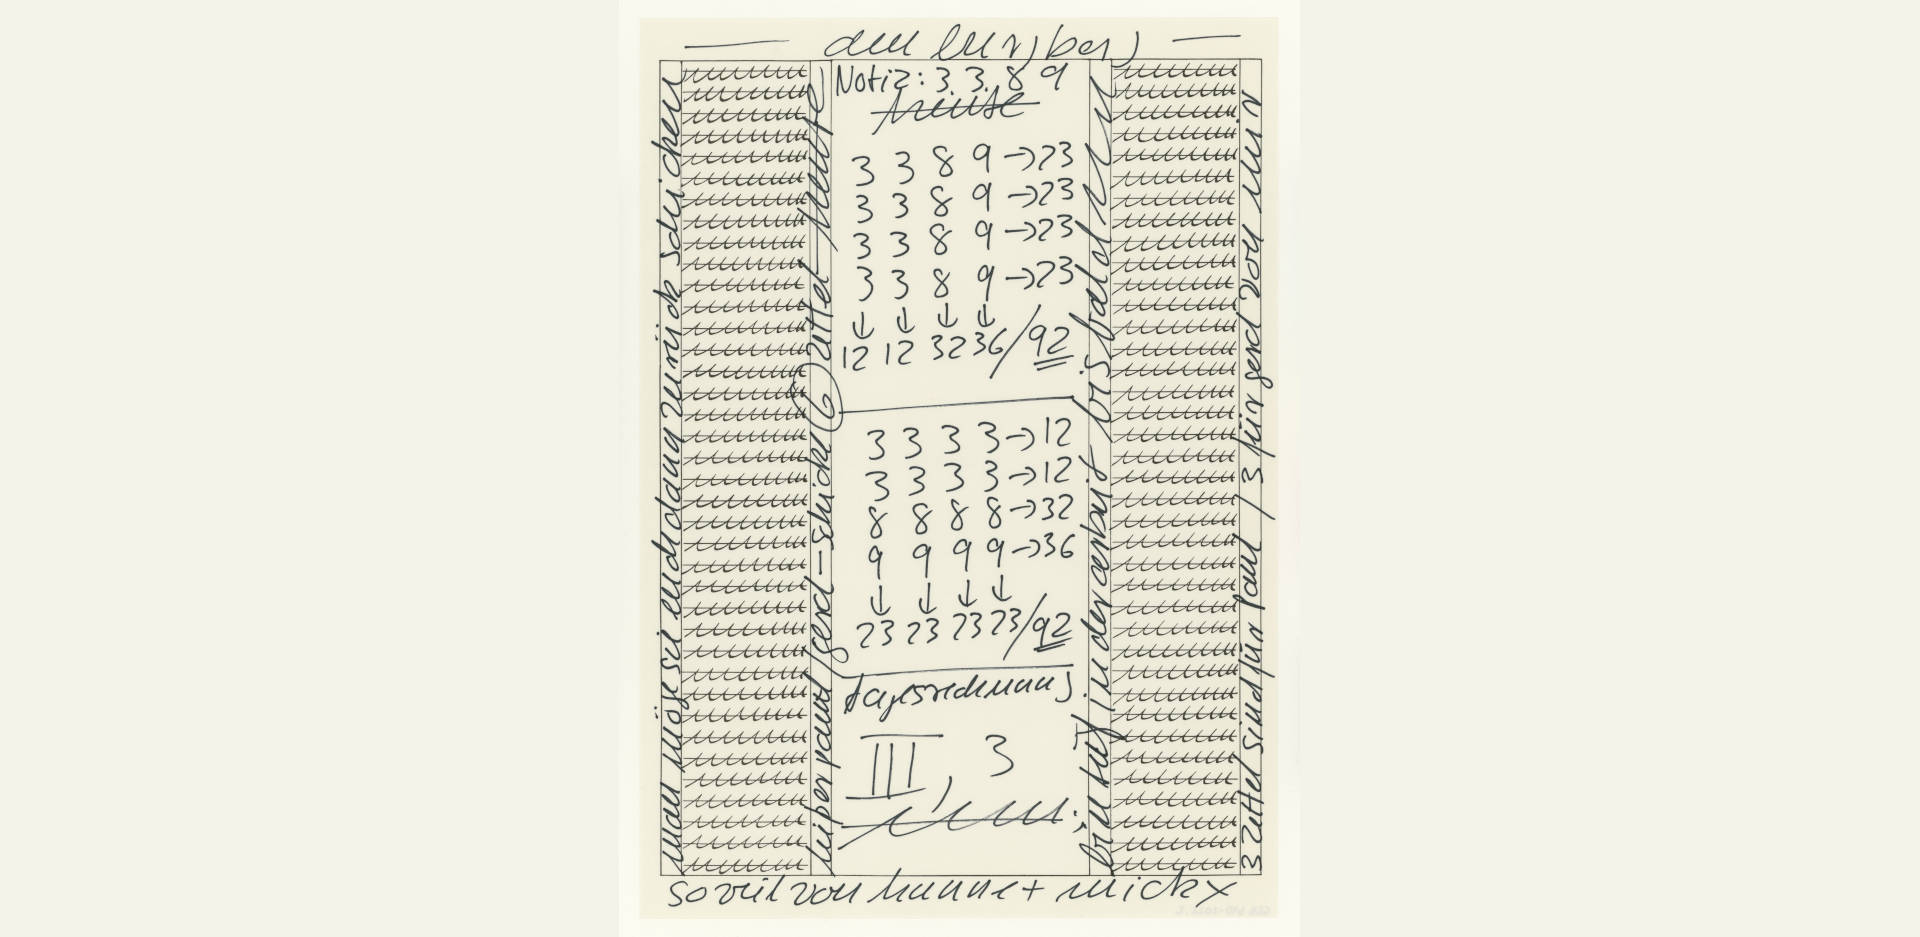 Notiz: 3. 3. 8 9
heute
3 3 8 9 → 23
3 3 8 9 → 23
3 3 8 9 → 23
3 3 8 9 → 23
↓ ↓ ↓ ↓
12 12 32 36 / 92
3 3 3 3 → 12
3 3 3 3 → 12
8 8 8 8 → 32
9 9 9 9 → 36
↓ ↓ ↓ ↓
23 23 23 23 / 92
tagesrechnung
III, 3
zurück schicken
lieber paul / gerd – schicke 6 zettel – heute
bin tief in der arbeit – bis bald
3 zettel sind für paul / 3 für gerd von mir
so viel von hanne + mickx